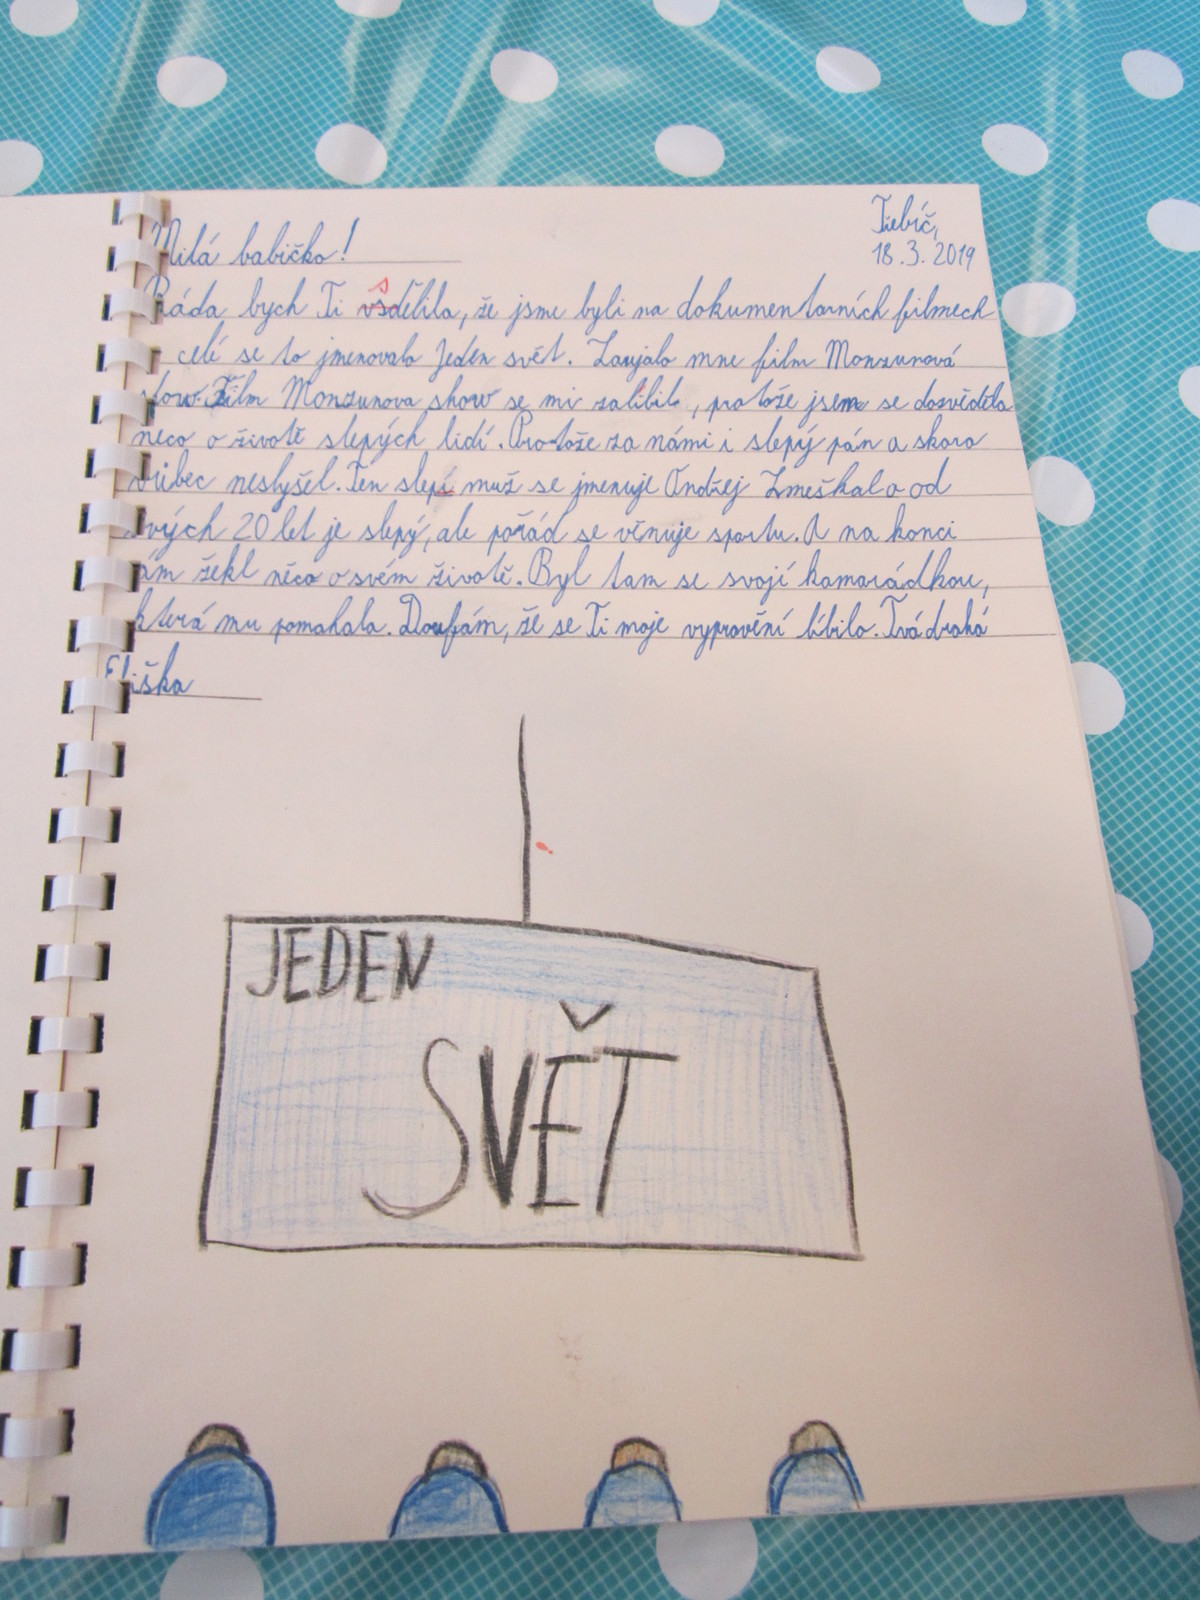 Třebíč,
18.3.2019
Milá babičko!
Ráda bych Ti sdělila, že jsme byli na dokumentarních filmech
celé se to jmenovalo Jeden svět. Zaujalo mne film Monzunová
show. Film Monzunova show se mi zalíbil, protože jsem se dozvěděla
něco o životě slepých lidí. Protože za námi i slepý pán a skoro
vůbec neslyšel. Ten slepí muž se jmenuje Ondřej Zmeškal a od
svých 20 let je slepý, ale pořád se věnuje sportu. A na konci
nám řekl něco o svém životě. Byl tam se svojí kamarádkou,
která mu pomahala. Doufám, že se Ti moje vypravění líbilo. Tvá drahá
Eliška
JEDEN
SVĚT